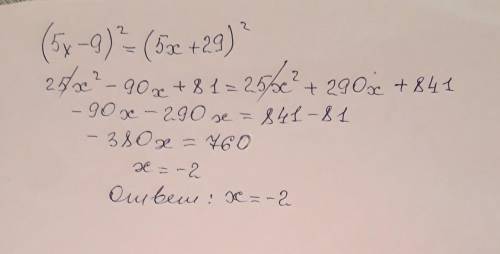 (5x-9)² = (5x+29)²
25x² - 90x + 81 = 25x² + 290x + 841
-90x - 290x = 841 - 81
-380x = 760
x = -2
Ответ: x = -2